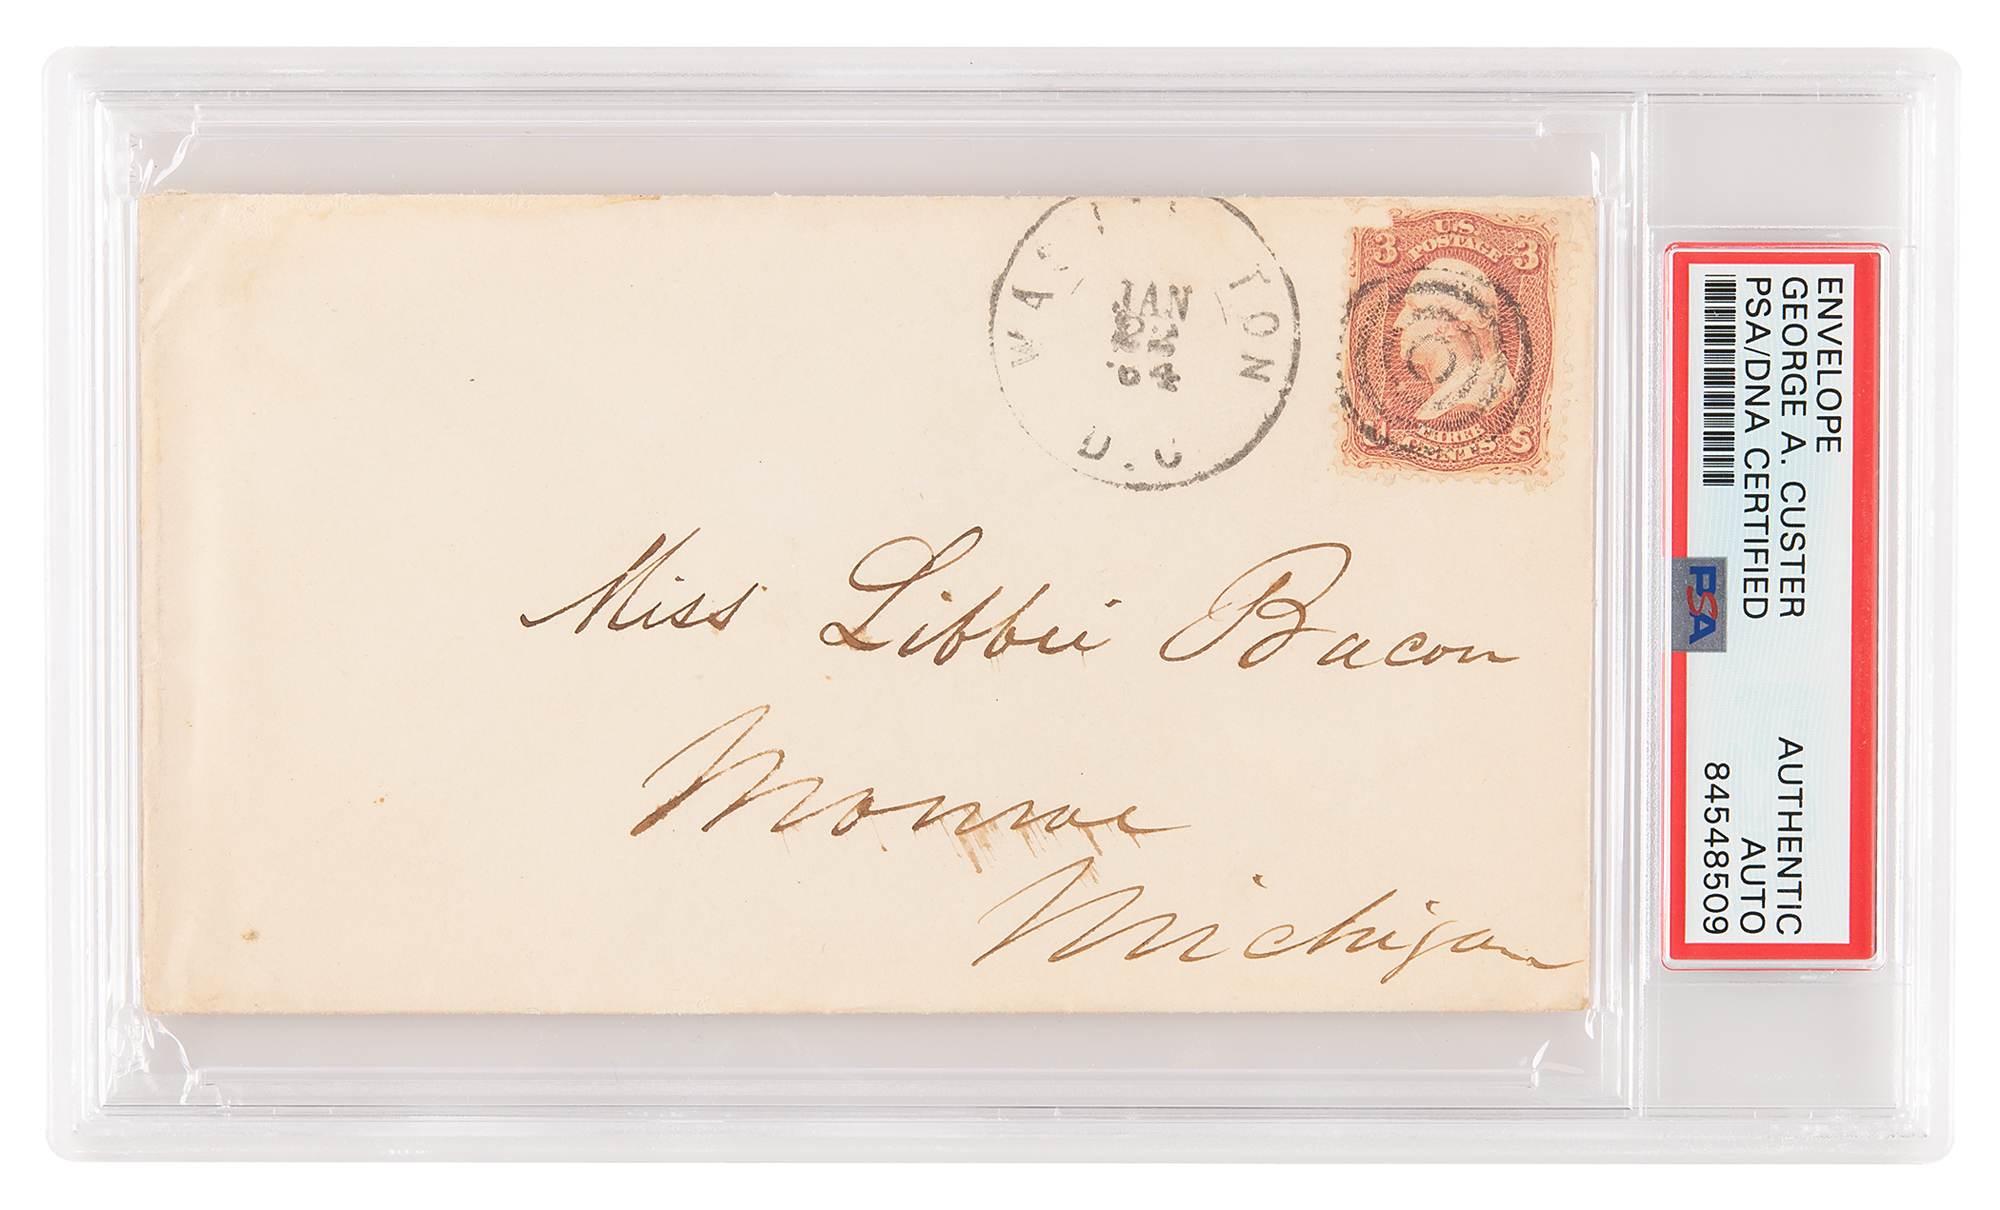 WAS TON
JAN
23
'64
D.C
U.S.
POSTAGE
3 3
THREE
CENTS
U S
Miss Libbie Bacon
Monroe
Michigan
ENVELOPE
GEORGE A. CUSTER AUTHENTIC
PSA/DNA CERTIFIED AUTO
84548509
PSA